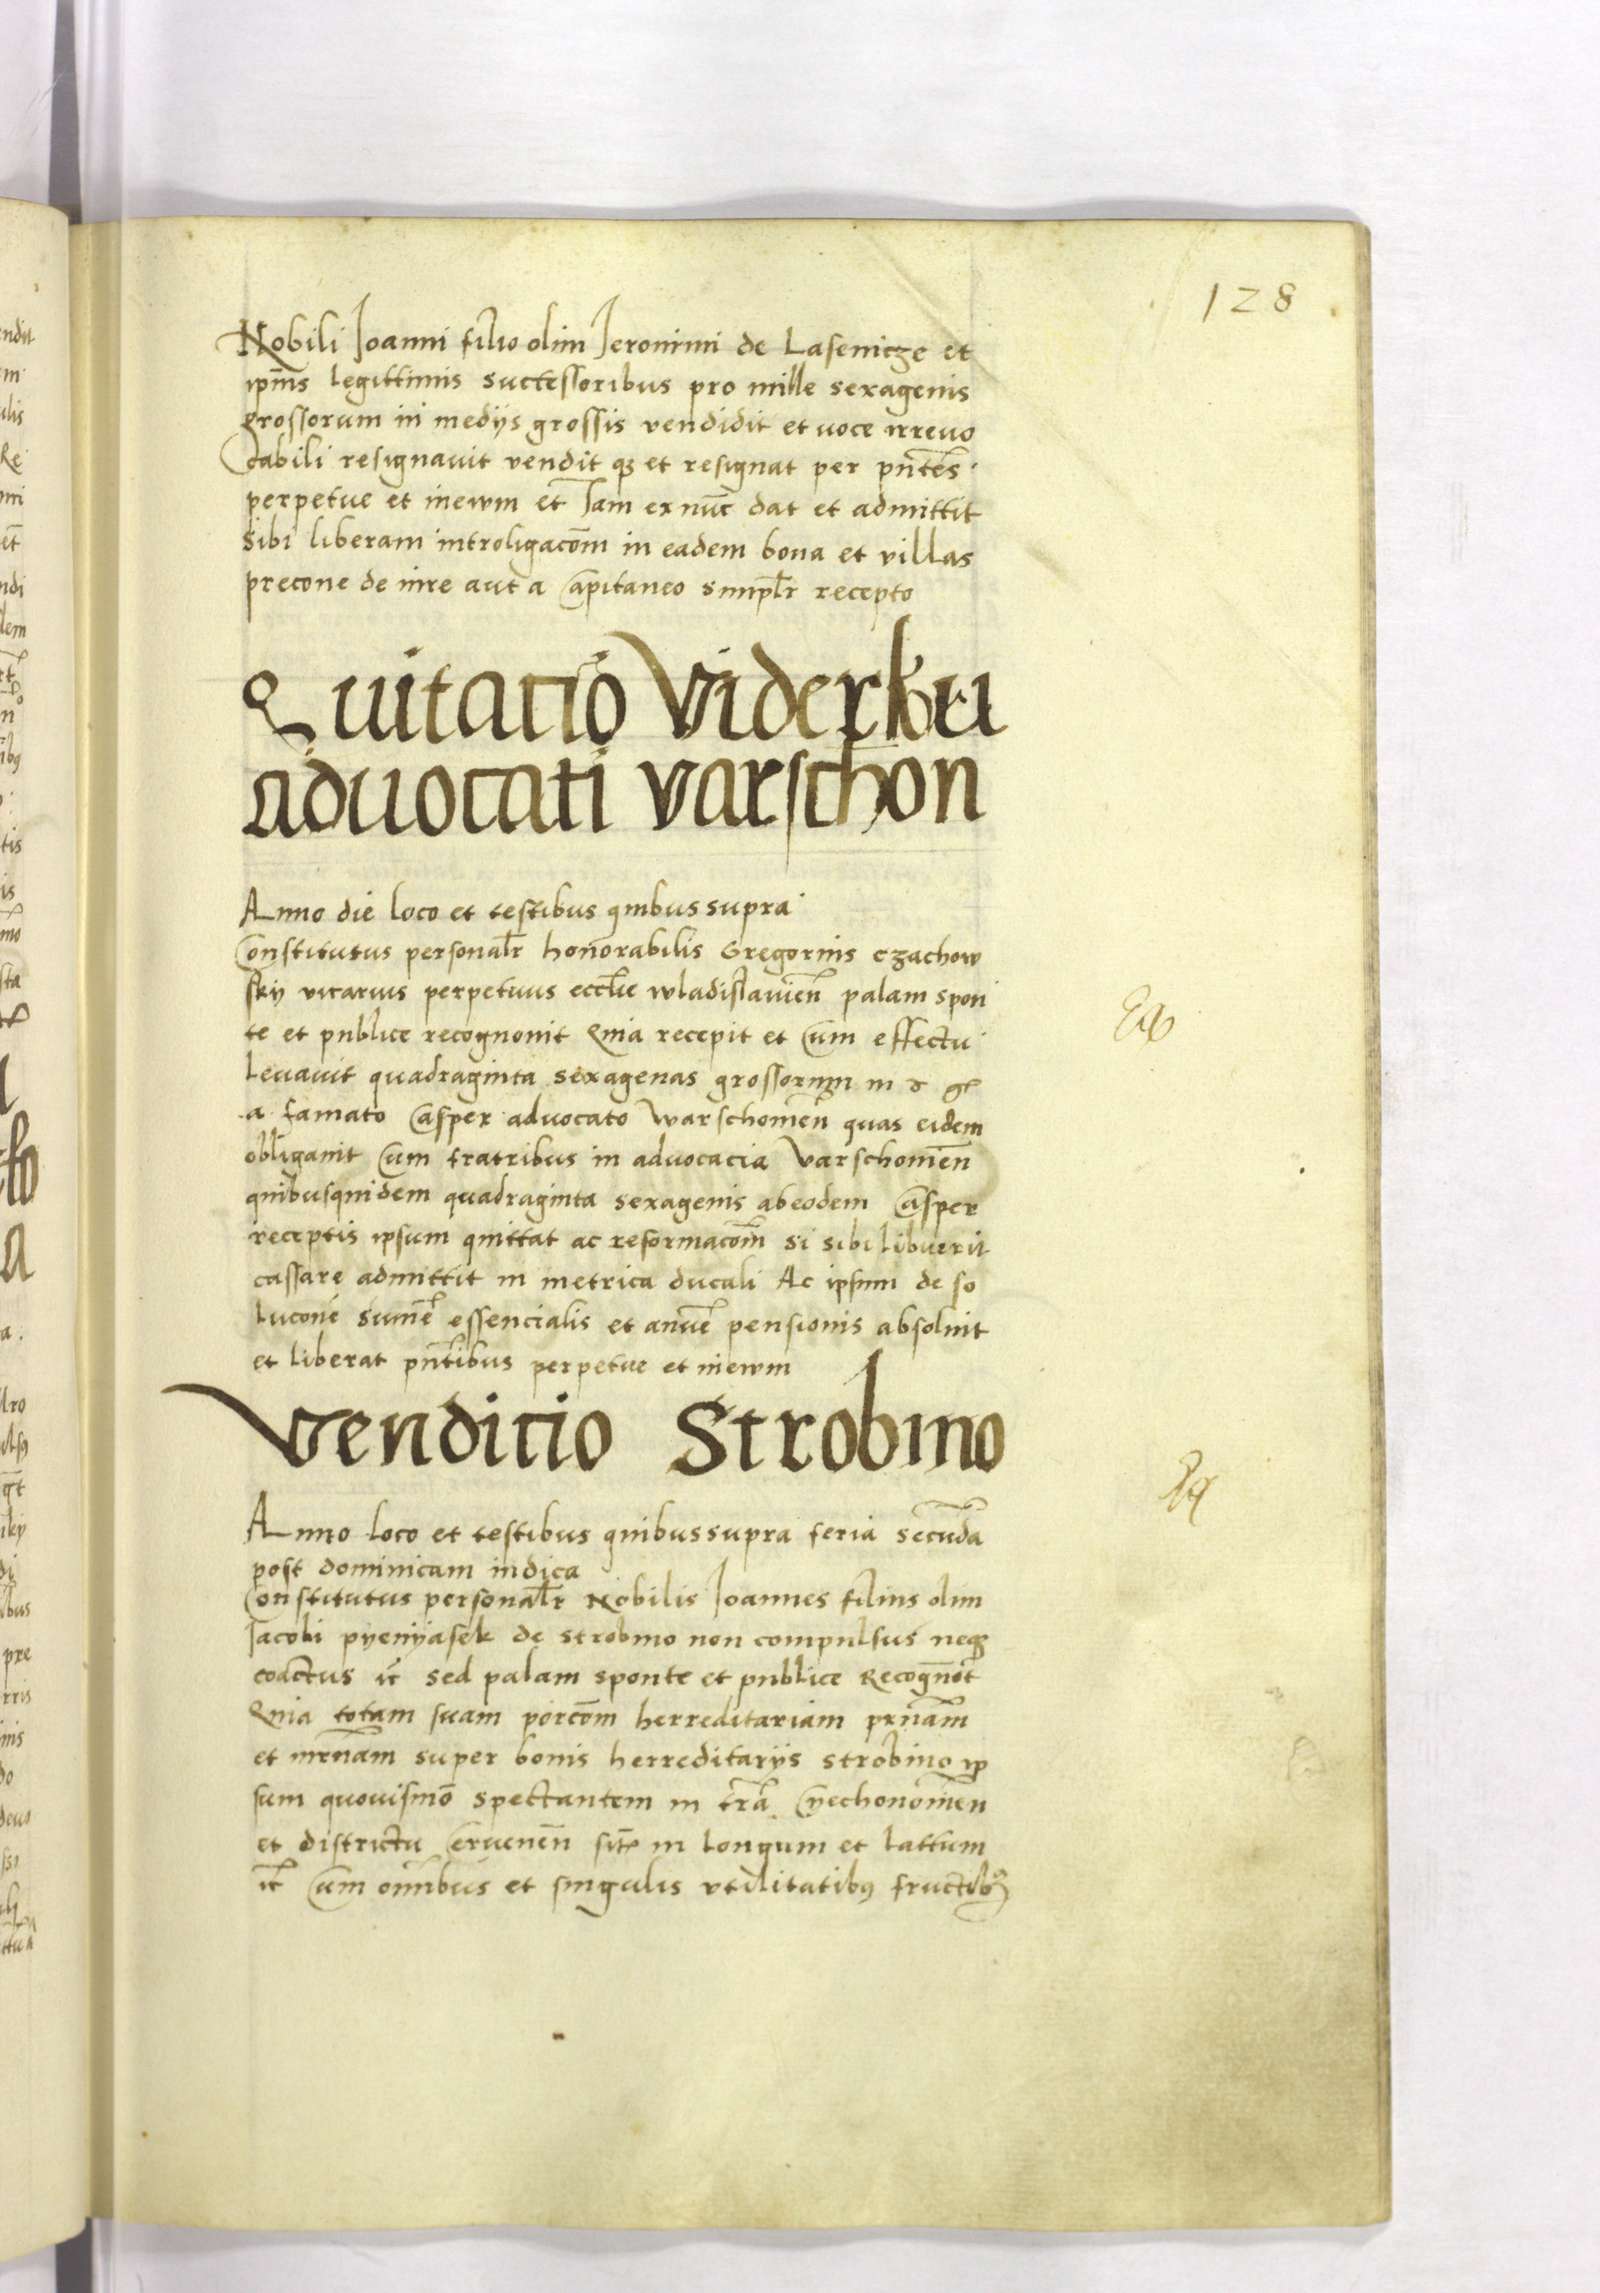 128
Nobili Joanni filio olim Jeronimi de Lasenicze et
ip̄ius legittimis successoribus pro mille sexagenis
grossorum in medijs grossis vendidit et voce irreuo
cabili resignauit vendit qȝ et resignat per pn̄tes
perpetue et inewm et Jam ex nūc dat et admittit
sibi liberam introligacōm in eadem bona et villas
precone de iure aut a Capitaneo simpl̄r recepto
Quitatio Viderkui
aduocati varschon
Anno die loco et testibus quibus supra
Constitutus personal̄r honorabilis Gregorius czachow
sky vicarius perpetuus eccl̄ie wladislauien̄ palam spon
te et publice recognouit Quia recepit et Cum effectu
leuauit quadraginta sexagenas grossorum in
a famato Casper aduocato warschouien̄ quas eidem
obligauit Cum fratribus in aduocacia Varschouien̄
quibusquidem quadraginta sexagenis ab eodem Casper
receptis ipsum quittat ac reformacōm si sibi libuerit
cassare admittit in metrica ducali Ac ipsum de so
lucone sum̄e essencialis et anūe pensionis absoluit
et liberat pn̄tibus perpetue et inewm
Venditio Strobino
Anno loco et testibus quibus supra feria secūda
post dominicam iudica
Constitutus personal̄r Nobilis Joannes filius olim
Jacobi pyenyasek de strobino non compulsus neqȝ
coactus ic̄ sed palam sponte et publice Recogno̅t
Quia totam suam porcōm herreditariam pr̄nam
et mr̄nam super bonis herreditarijs strobino ip
sum quouismō spectantem in tr̄a Cyechonouien
et districtu Cervenen̄ sit̄ in longum et lattum
ic̄ Cum om̄ibus et singulis vtilitatibȝ fructibȝ